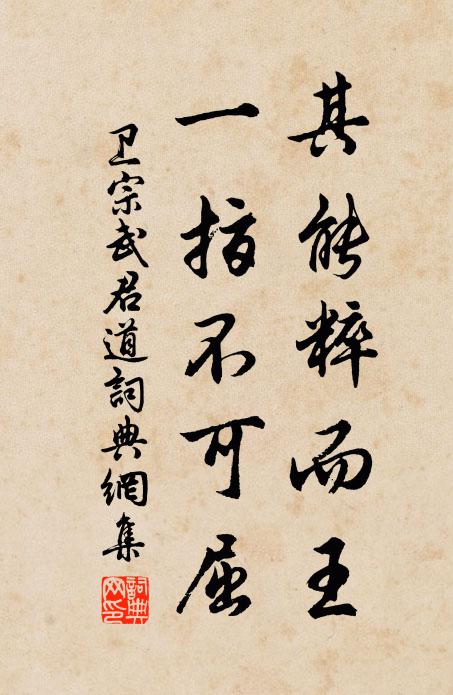 其能粹而王
一指不可屈
卫宗武君道詞典網集
詞典网印